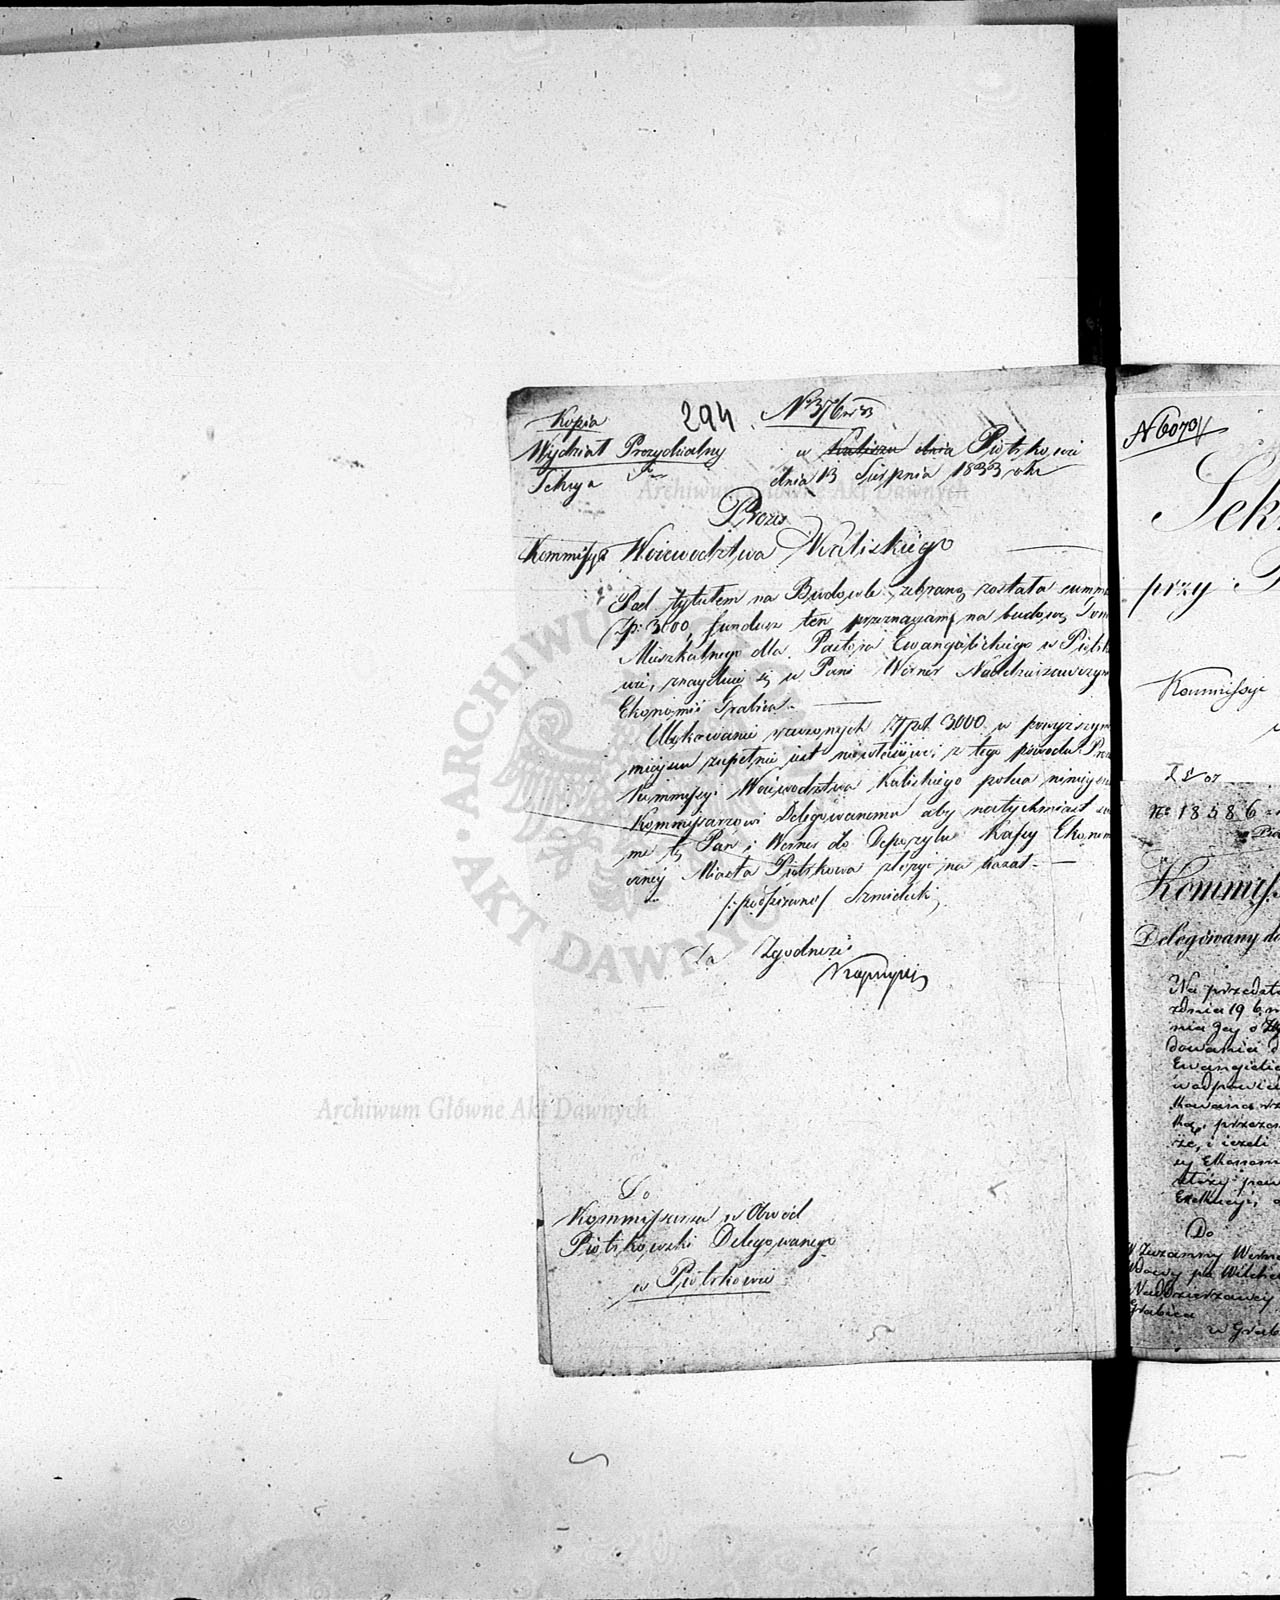 Kopia
294. No 376
Wydział Prezydialny
w Kaliszu dnia Piotrkowie
Sekcya
dnia 13 Sierpnia 1833 roku
Archiwum Główne Akt Dawnych
Prezes
Kommissyi Województwa Kaliskiego
Pod tytułem na Budowle zebraną została summa
Zp: 3000, fundusz ten przeznaczony na budowę Domu
Mieszkalnego dla Pastora Ewangelickiego w Piotrko
wie, znayduie się u Pani Werner Naddzierzawczyni
Ekonomii Grabica.
Ulokowanie rzeczonych Złpol: 3000 w powyższym
miejscu zupełnie jest niewłaściwe; z tego powodu Prezes
Kommissyi Województwa Kaliskiego poleca niniejszem
Kommissarzowi Delegowanemu aby natychmiast
tę Pani Werner do Depozytu Kassy Ekonom
iczney Miasta Piotrkowa złożyć nakazał.
/:podpisano/ Szmidecki
Za Zgodność
ARCHIWUM GŁÓWNE AKT DAWNYCH
Archiwum Główne Akt Dawnych
Do
Kommissarza w Obwód
Piotrkowski Delegowanego
w Piotrkowie
N 6070
Sek
przy
Kommissyi
No 18586
Kommiss
Delegowany do
Na przedst
zdnia 19 b. m
nia Jey o
dowania d
Ewangielic
w odpowied
kowana
kę, przezon
że, i ieżeli
sy Ekonomi
złoży
Exekucyi,
Do
W Zuzanny Werner
Wdowy po
Naddzierzawcy
Grabica
w Grab